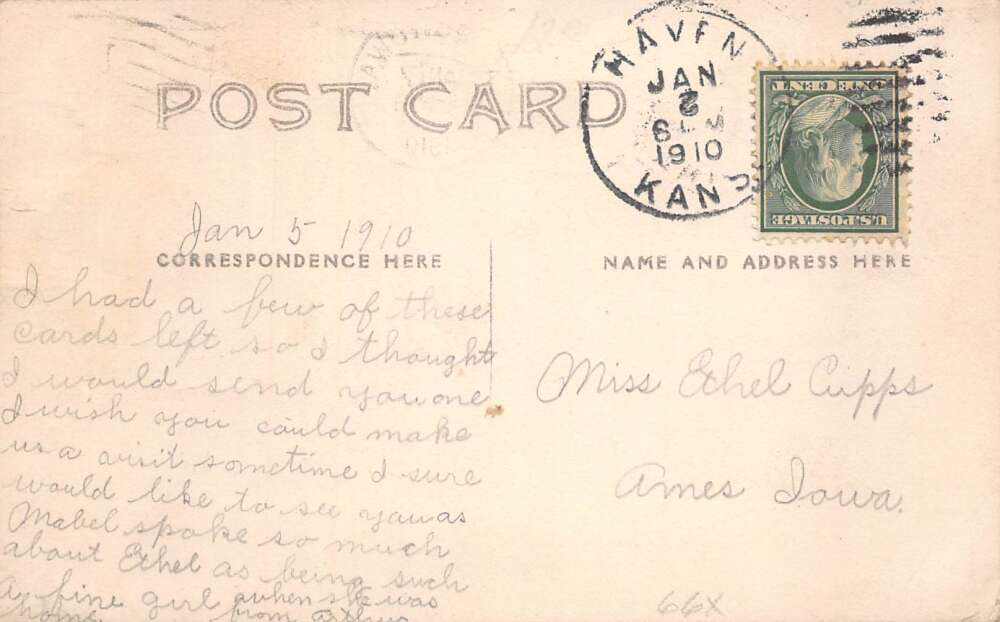 POST CARD
HAVEN
JAN
6 PM
1910
KANS
ONE CENT
U.S. POSTAGE
Jan 5 1910
CORRESPONDENCE HERE
NAME AND ADDRESS HERE
I had a few of these
cards left so I thought
I would send you one
I wish you could make
us a visit sometime I sure
would like to see you as
Mabel spoke so much
about Ethel as being such
a fine girl when she was
home from
Miss Ethel Cupps
Ames Iowa.
66X